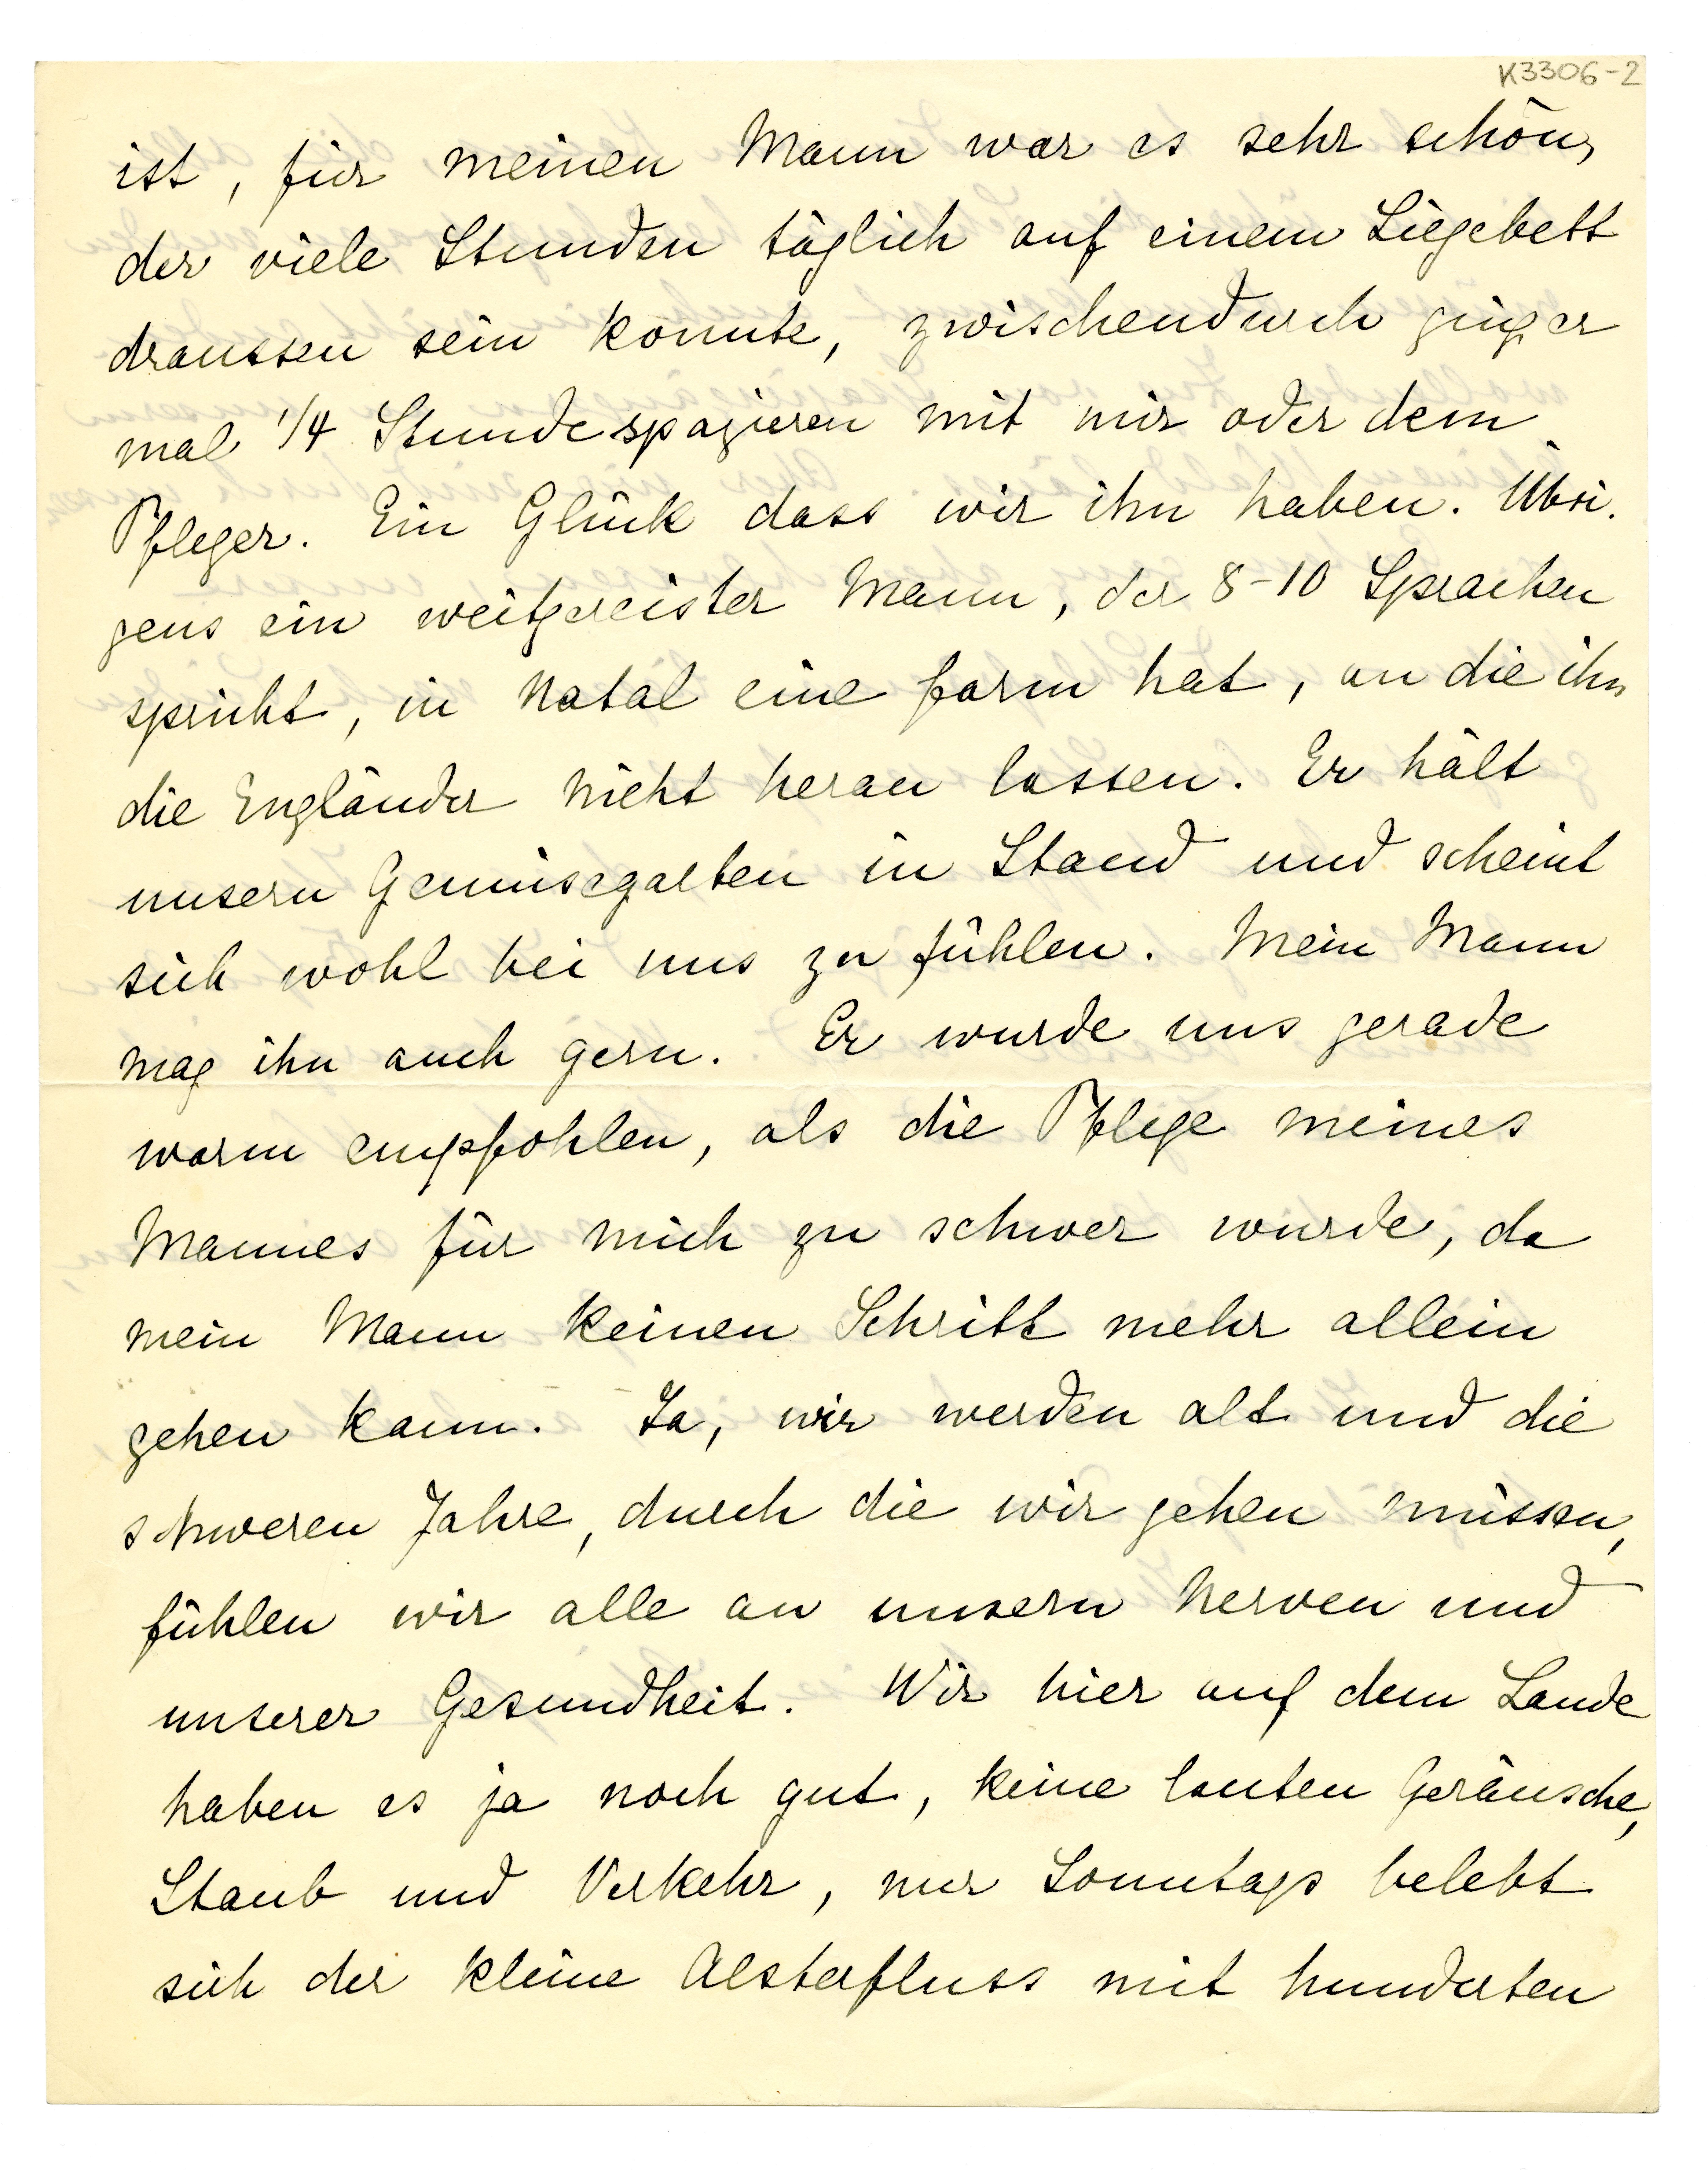 K3306-2
ist, für meinen Mann war es sehr schön,
der viele Stunden täglich auf einem Liegebett
draussen sein konnte, zwischendurch ging er
mal 1/4 Stunde spazieren mit mir oder dem
Pfleger. Ein Glück dass wir ihn haben. Übri.
gens ein weitgereister Mann, der 8-10 Sprachen
spricht, in Natal eine Farm hat, an die ihn
die Engländer nicht heran lassen. Er hält
unsern Gemüsegarten in Stand und scheint
sich wohl bei uns zu fühlen. Mein Mann
mag ihn auch gern. Er wurde uns gerade
warm empfohlen, als die Pflege meines
Mannes für mich zu schwer wurde, da
mein Mann keinen Schritt mehr allein
gehen kann. Ja, wir werden alt und die
schweren Jahre, durch die wir gehen müssen,
fühlen wir alle an unsern Nerven und
unserer Gesundheit. Wir hier auf dem Lande
haben es ja noch gut, keine lauten Geräusche,
Staub und Verkehr, nur Sonntags belebt
sich der kleine Alsterfluss mit hunderten